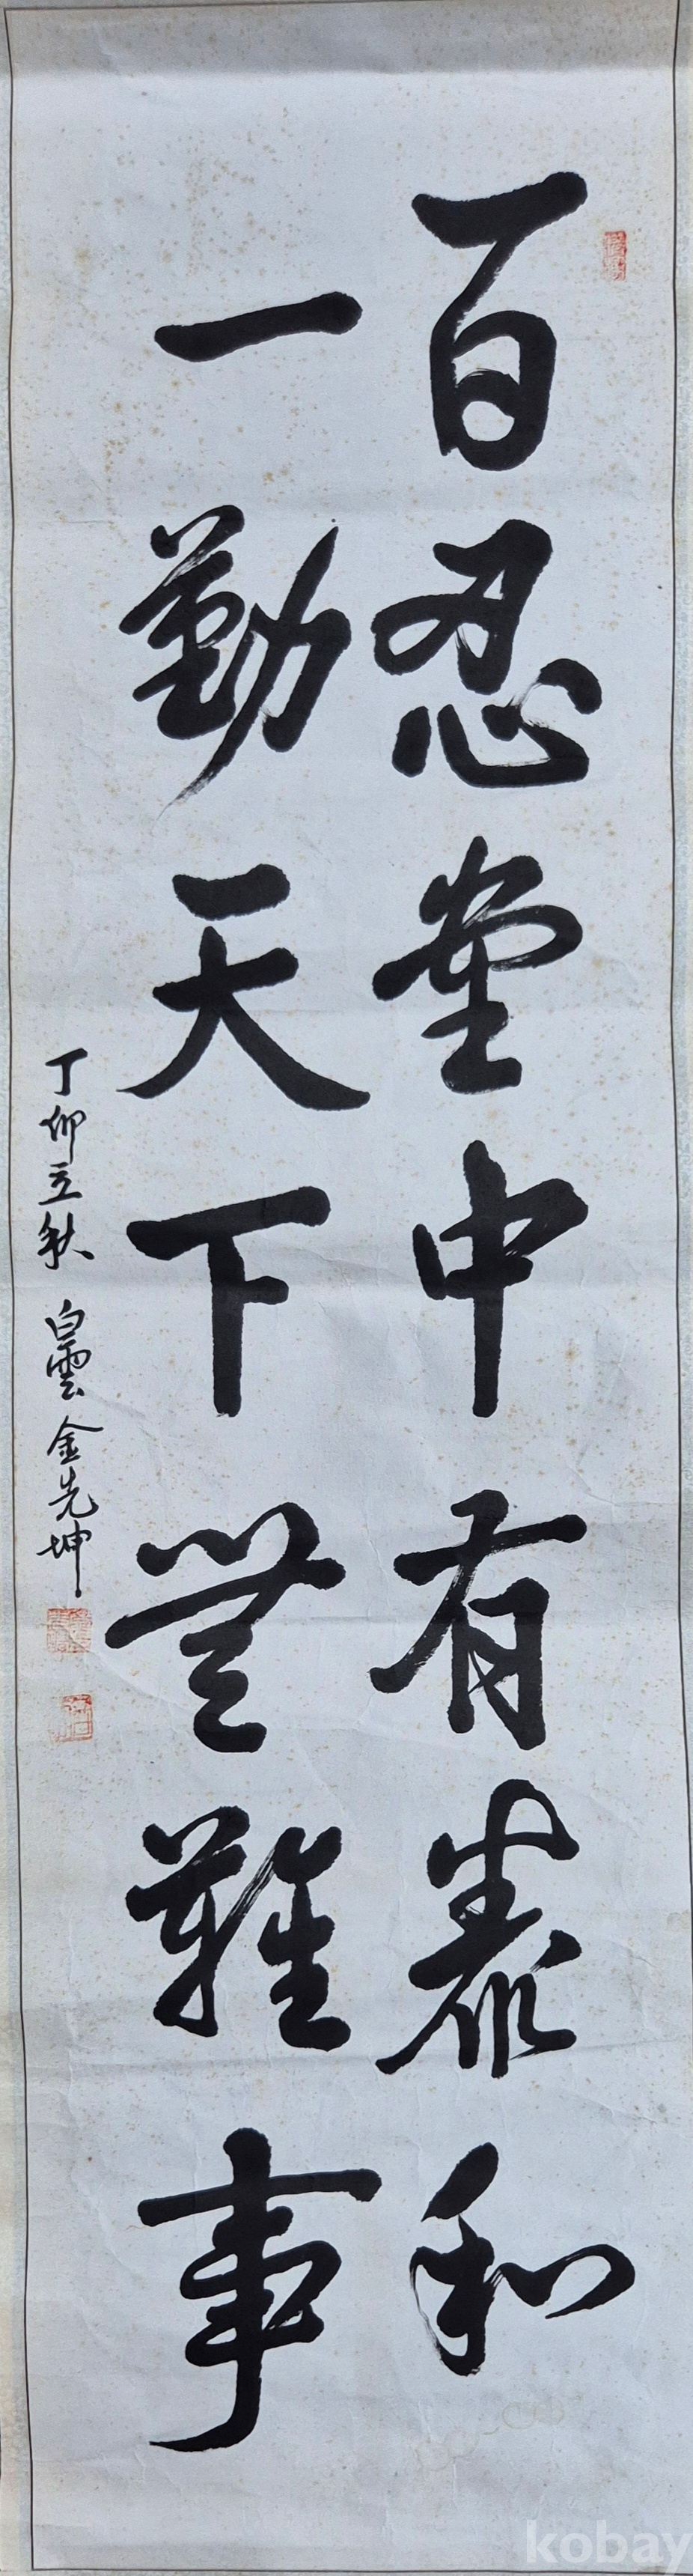 百忍堂中有泰和
一勤天下無難事
丁卯立秋 白雲 金先坤
kobay